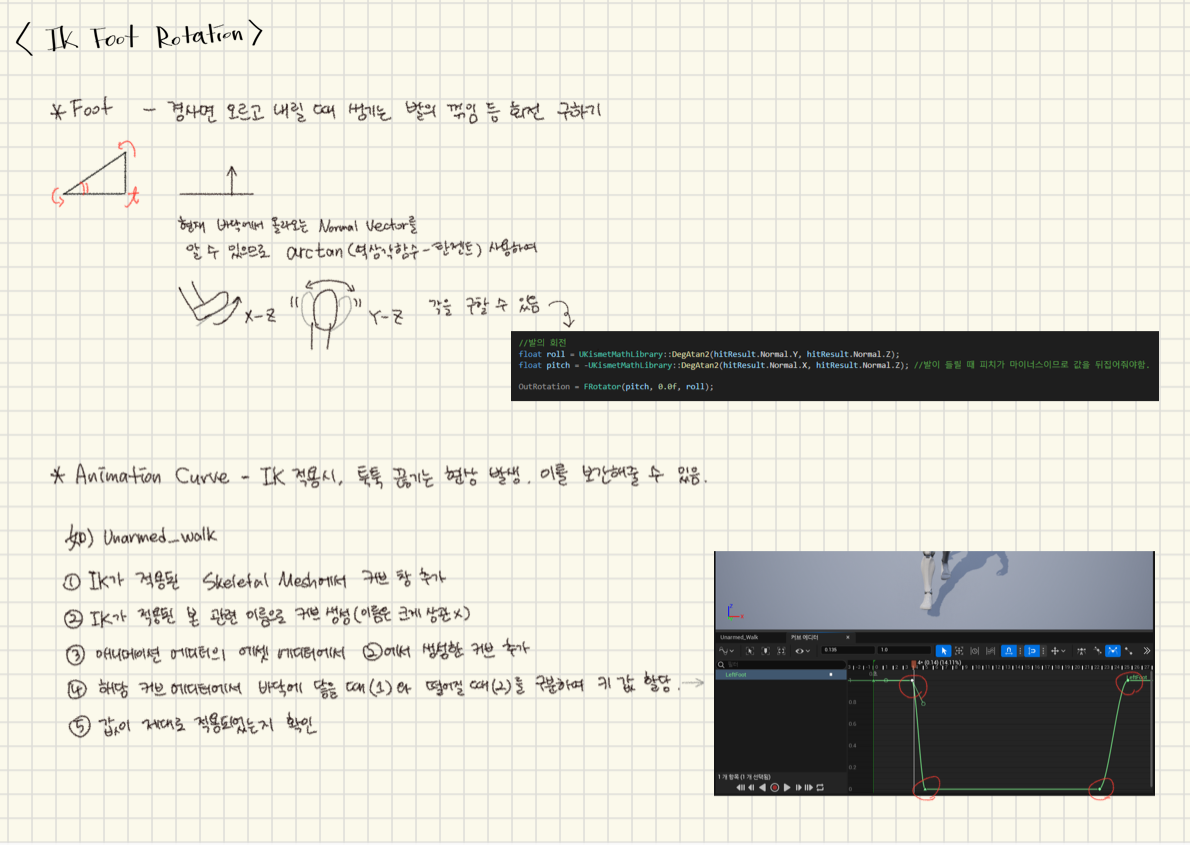 < IK Foot Rotation >
* Foot - 경사면 오르고 내릴 때 생기는 발의 꺾임 등 회전 구하기
t
현재 바닥에서 올라오는 Normal Vector를
알 수 있으므로 arctan(역삼각함수-탄젠트) 사용하여
X-Z
Y-Z
각을 구할 수 있음
//발의 회전
float roll = UKismetMathLibrary::DegAtan2(hitResult.Normal.Y, hitResult.Normal.Z);
float pitch = -UKismetMathLibrary::DegAtan2(hitResult.Normal.X, hitResult.Normal.Z); //발이 들릴 때 피치가 마이너스이므로 값을 뒤집어줘야함.
OutRotation = FRotator(pitch, 0.0f, roll);
* Animation Curve - IK 적용시, 툭툭 끊기는 현상 발생. 이를 보간해줄 수 있음.
Unarmed_walk
① IK가 적용된 Skeletal Mesh에서 커브 창 추가
② IK가 적용된 본 관련 이름으로 커브 생성(이름은 크게 상관X)
③ 애니메이션 에디터의 에셋 에디터에서 ②에서 생성한 커브 추가
④ 해당 커브 에디터에서 바닥에 닿을 때(1)와 떨어질 때(2)를 구분하여 키 값 할당.
⑤ 값이 제대로 적용되었는지 확인
Unarmed_Walk
커브 에디터
0.135
1.0
4+ (0.14) (14.11%)
LeftFoot
LeftFoot
0.8
0.6
0.4
0.2
0
1 개 항목 (1 개 선택됨)